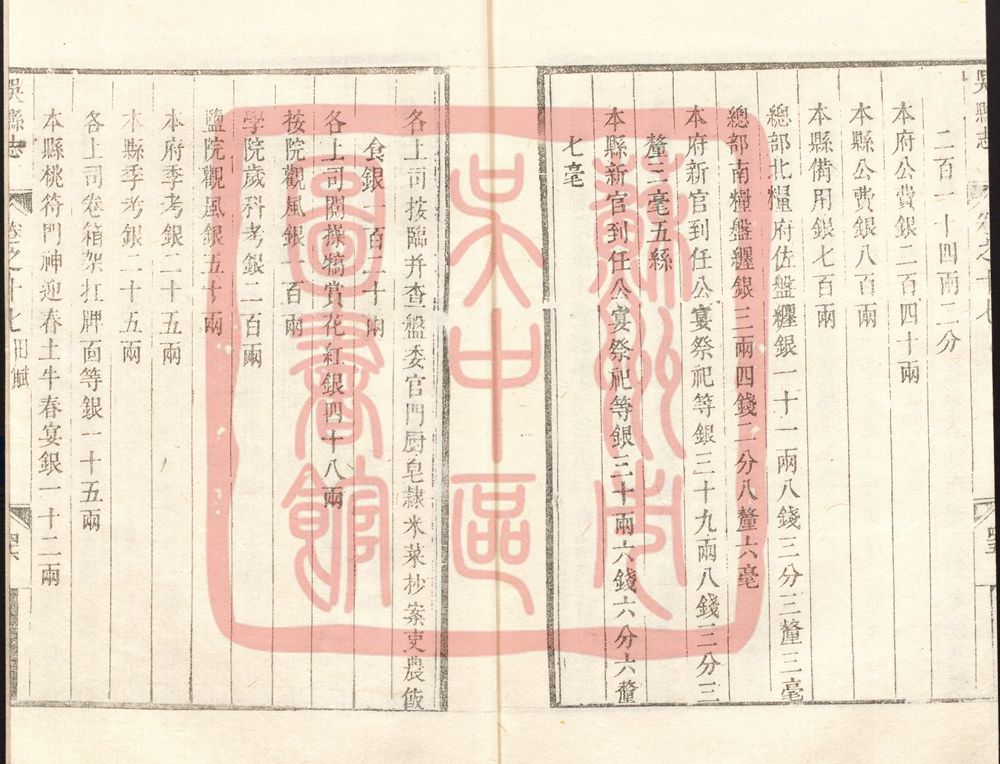 吳縣志
卷之十七
二百一十四兩二分
本府公費銀二百四十兩
本縣公費銀八百兩
本縣備用銀七百兩
總部北糧府佐盤纏銀一十一兩八錢三分三釐三毫
總部南糧盤纏銀三兩四錢二分八釐六毫
本府新官到任公宴祭祀等銀三十九兩八錢三分三
釐三毫五絲
本縣新官到任公宴祭祀等銀三十兩六錢六分六釐
七毫
各上司按臨并查盤委官門厨皂隷米菜抄案吏農飯
食銀一百二十兩
各上司閱操犒賞花紅銀四十八兩
按院觀風銀一百兩
學院歲科考銀二百兩
鹽院觀風銀五十兩
本府季考銀二十五兩
本縣季考銀二十五兩
各上司卷箱架扛牌面等銀一十五兩
本縣桃符門神迎春土牛春宴銀一十二兩
吳縣志
卷之十七 田賦
蘇州市
吳中區
圖書館